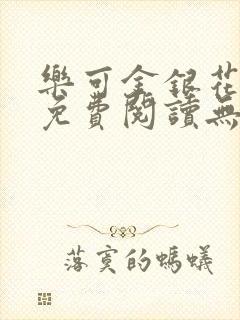 樂可金銀花
免費閱讀無
落寞的螞蟻